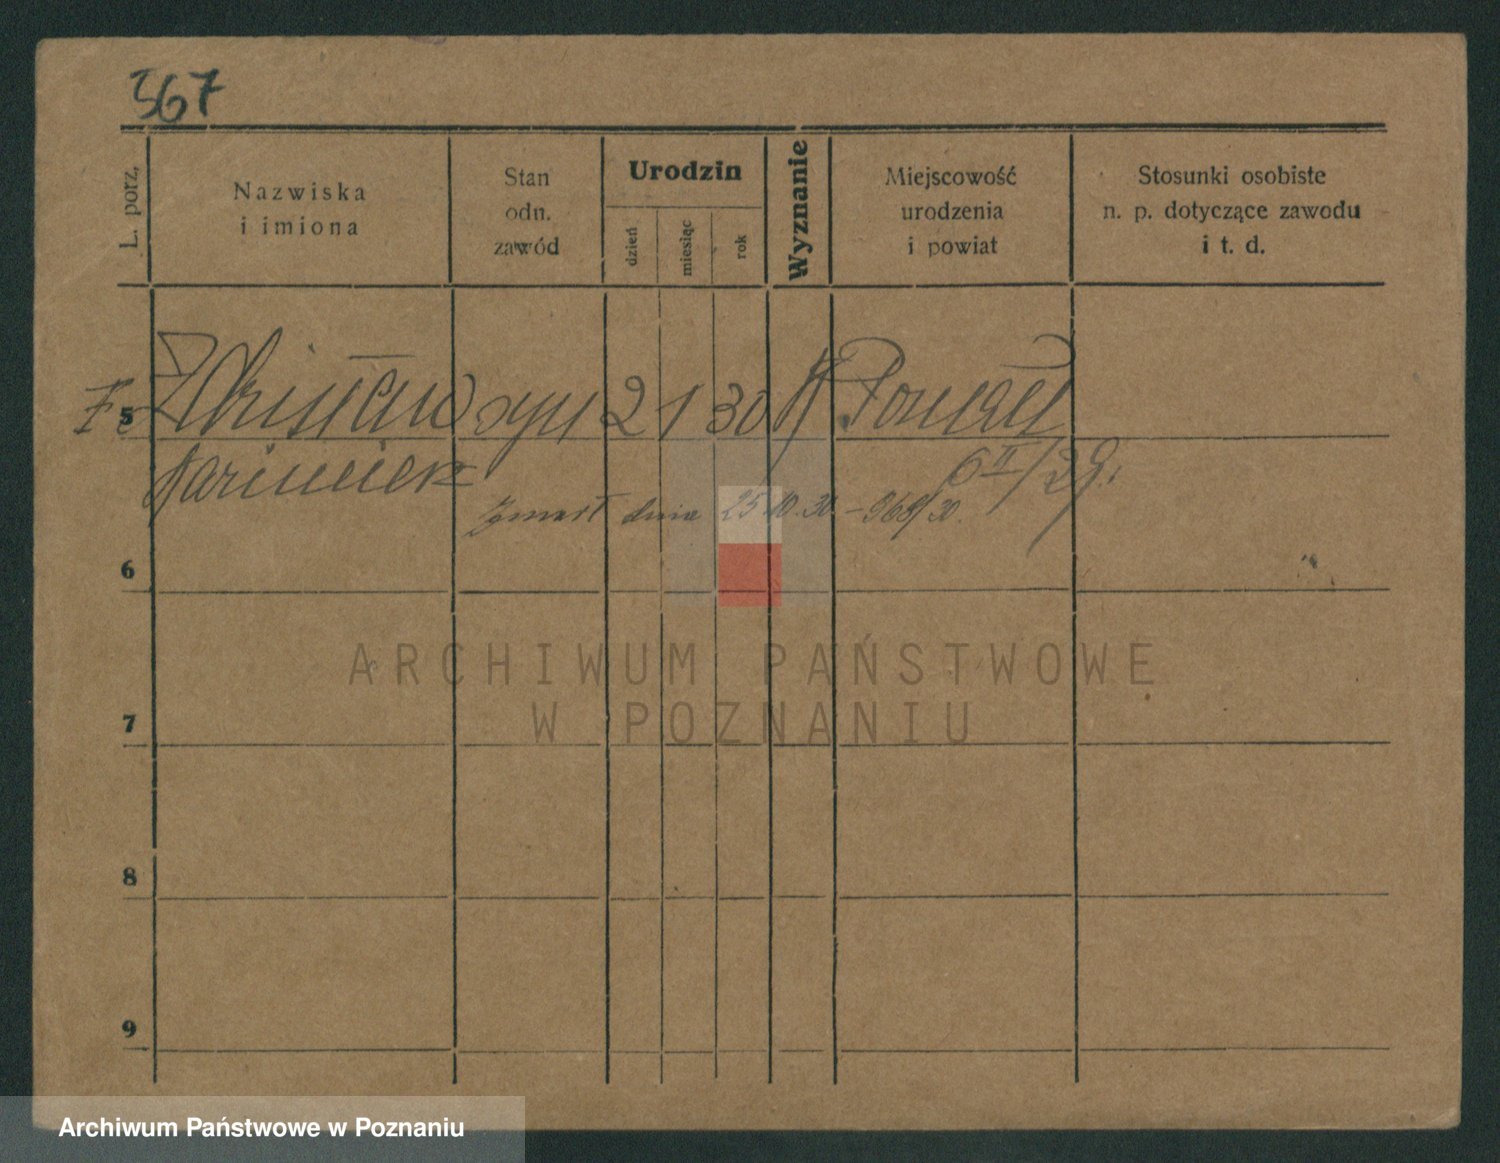 567
L. porz.
Nazwiska
i imiona
Stan
odn.
zawód
Urodzin
dzień
miesiąc
rok
Wyznanie
Miejscowość
urodzenia
i powiat
Stosunki osobiste
n. p. dotyczące zawodu
i t. d.
5 syn 2 1 30
6 II/29.
zmarł dnia 25.10.30. – 968/30.
6
ARCHIWUM PAŃSTWOWE
W POZNANIU
7
8
9
Archiwum Państwowe w Poznaniu